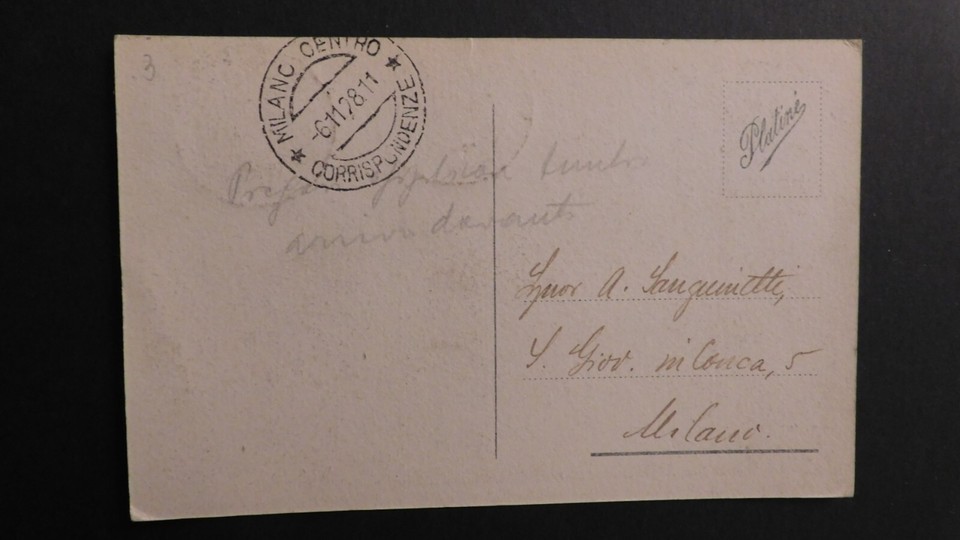 3
MILANO CENTRO
-6.11.28.11
CORRISPONDENZE
Platinè
timbro
arrivo davanti
Signor A. Sanguinetti,
S. Giov. in Conca, 5
Milano.